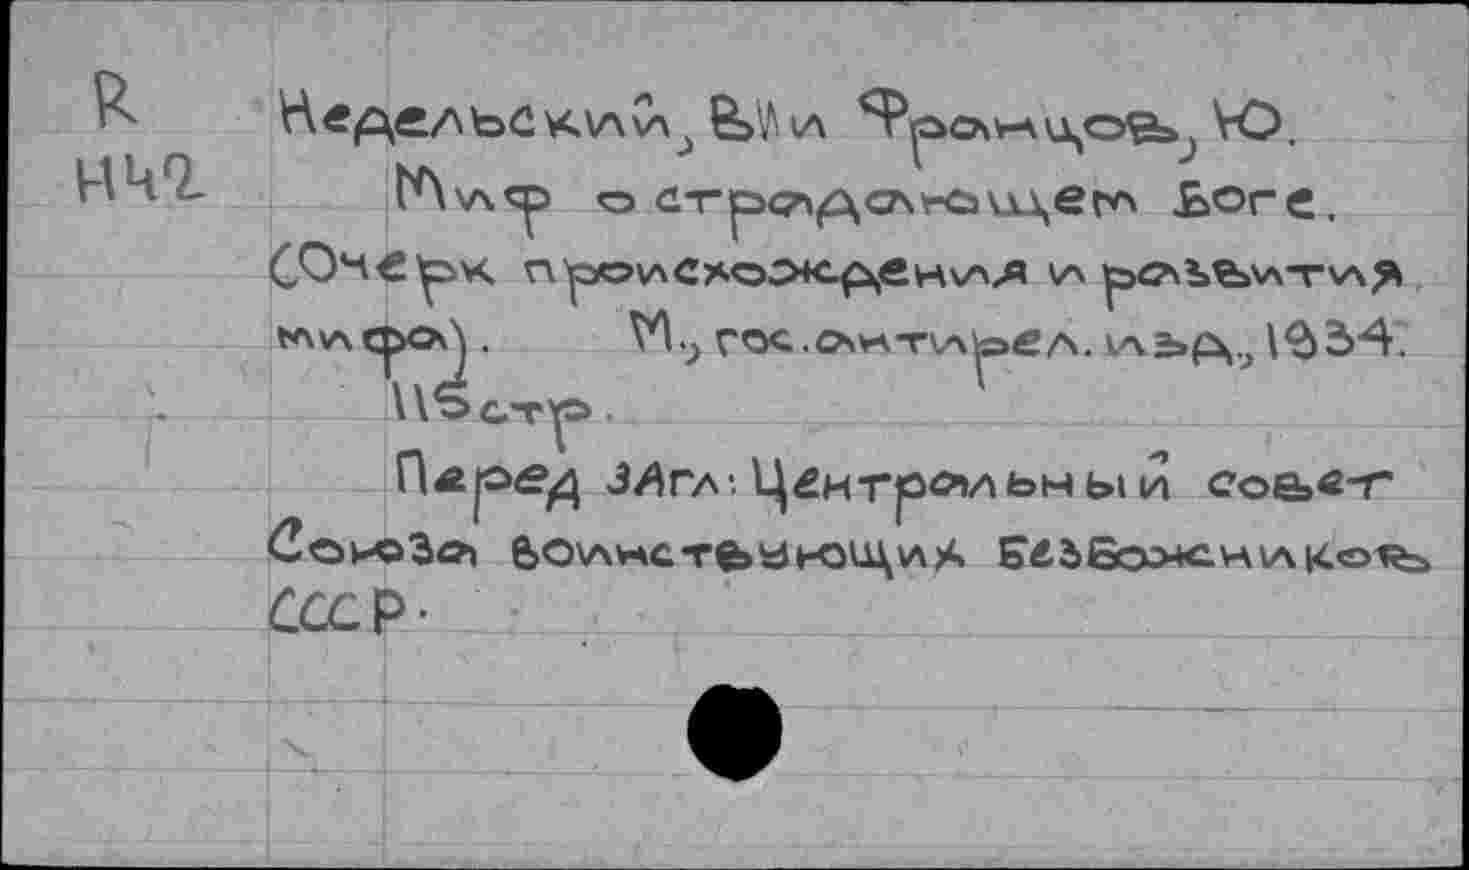 R
Н42
Недельский, В.И и Францов, Ю.
Миф о страдающем Боге.
(Очерк происхождения и развития
мифа). М., гос. антирел. изд., 1934.
115 стр.
Перед загл: Центральный совет
Союза воинствующих Безбожников
СССР.